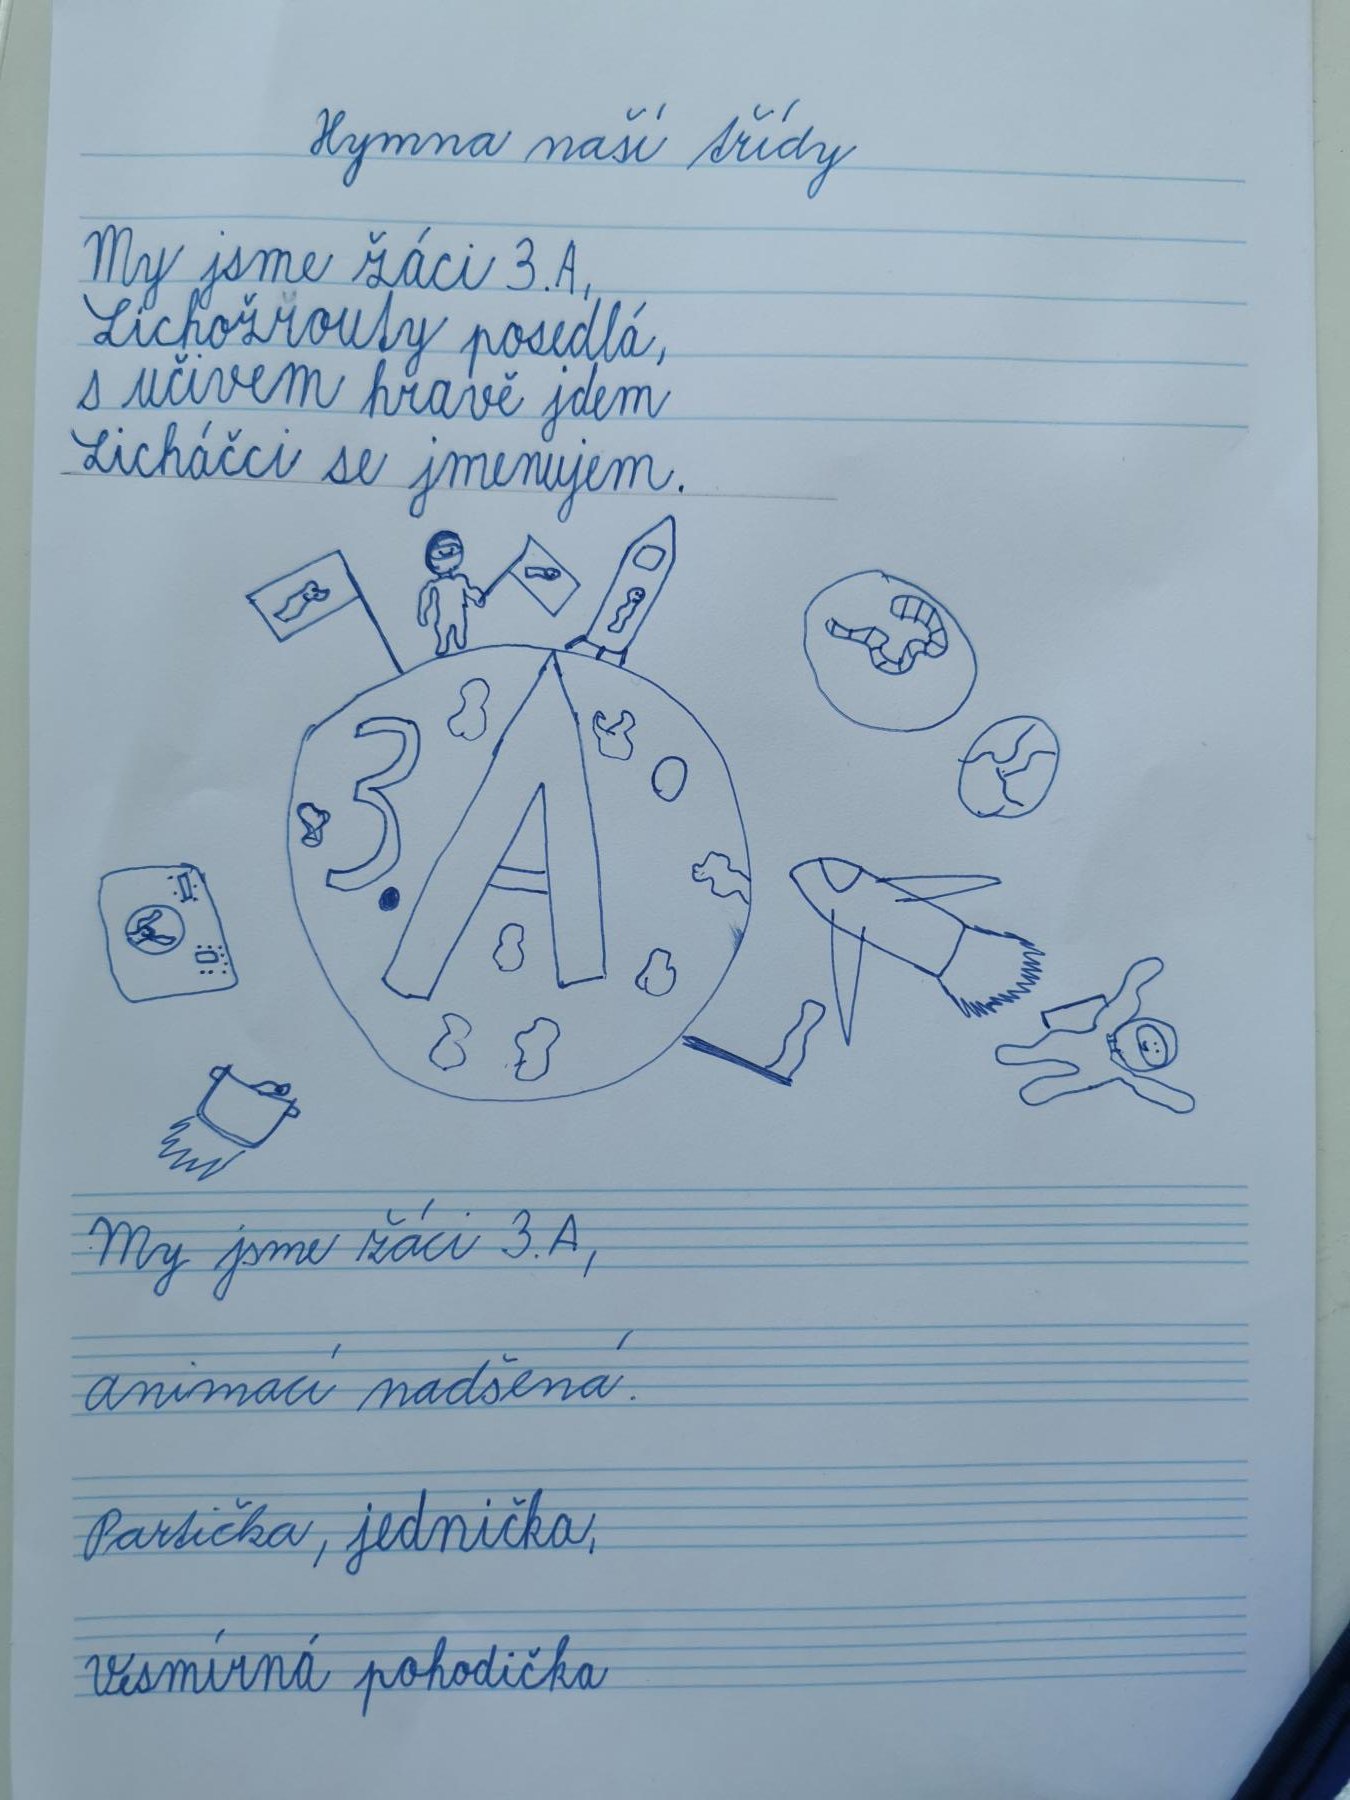 Hymna naší třídy
My jsme žáci 3.A,
Lichožrouty posedlá,
s učivem hravě jdem
Licháčci se jmenujem.
3.A
My jsme žáci 3.A,
animací nadšená.
Partička, jednička,
vesmírná pohodička